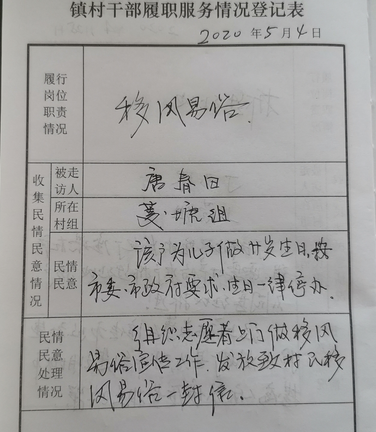 镇村干部履职服务情况登记表
2020年5月4日
履行
岗位
职责
情况
移风易俗.
收集民情民意情况
被走
访人
唐春日
所在
村组
菱塘组
民情
民意
该户为儿子做廿岁生日,按
市委、市政府要求,生日一律停办.
民情
民意
处理
情况
组织志愿者上门做移风
易俗宣传工作,发放致村民移
风易俗一封信.